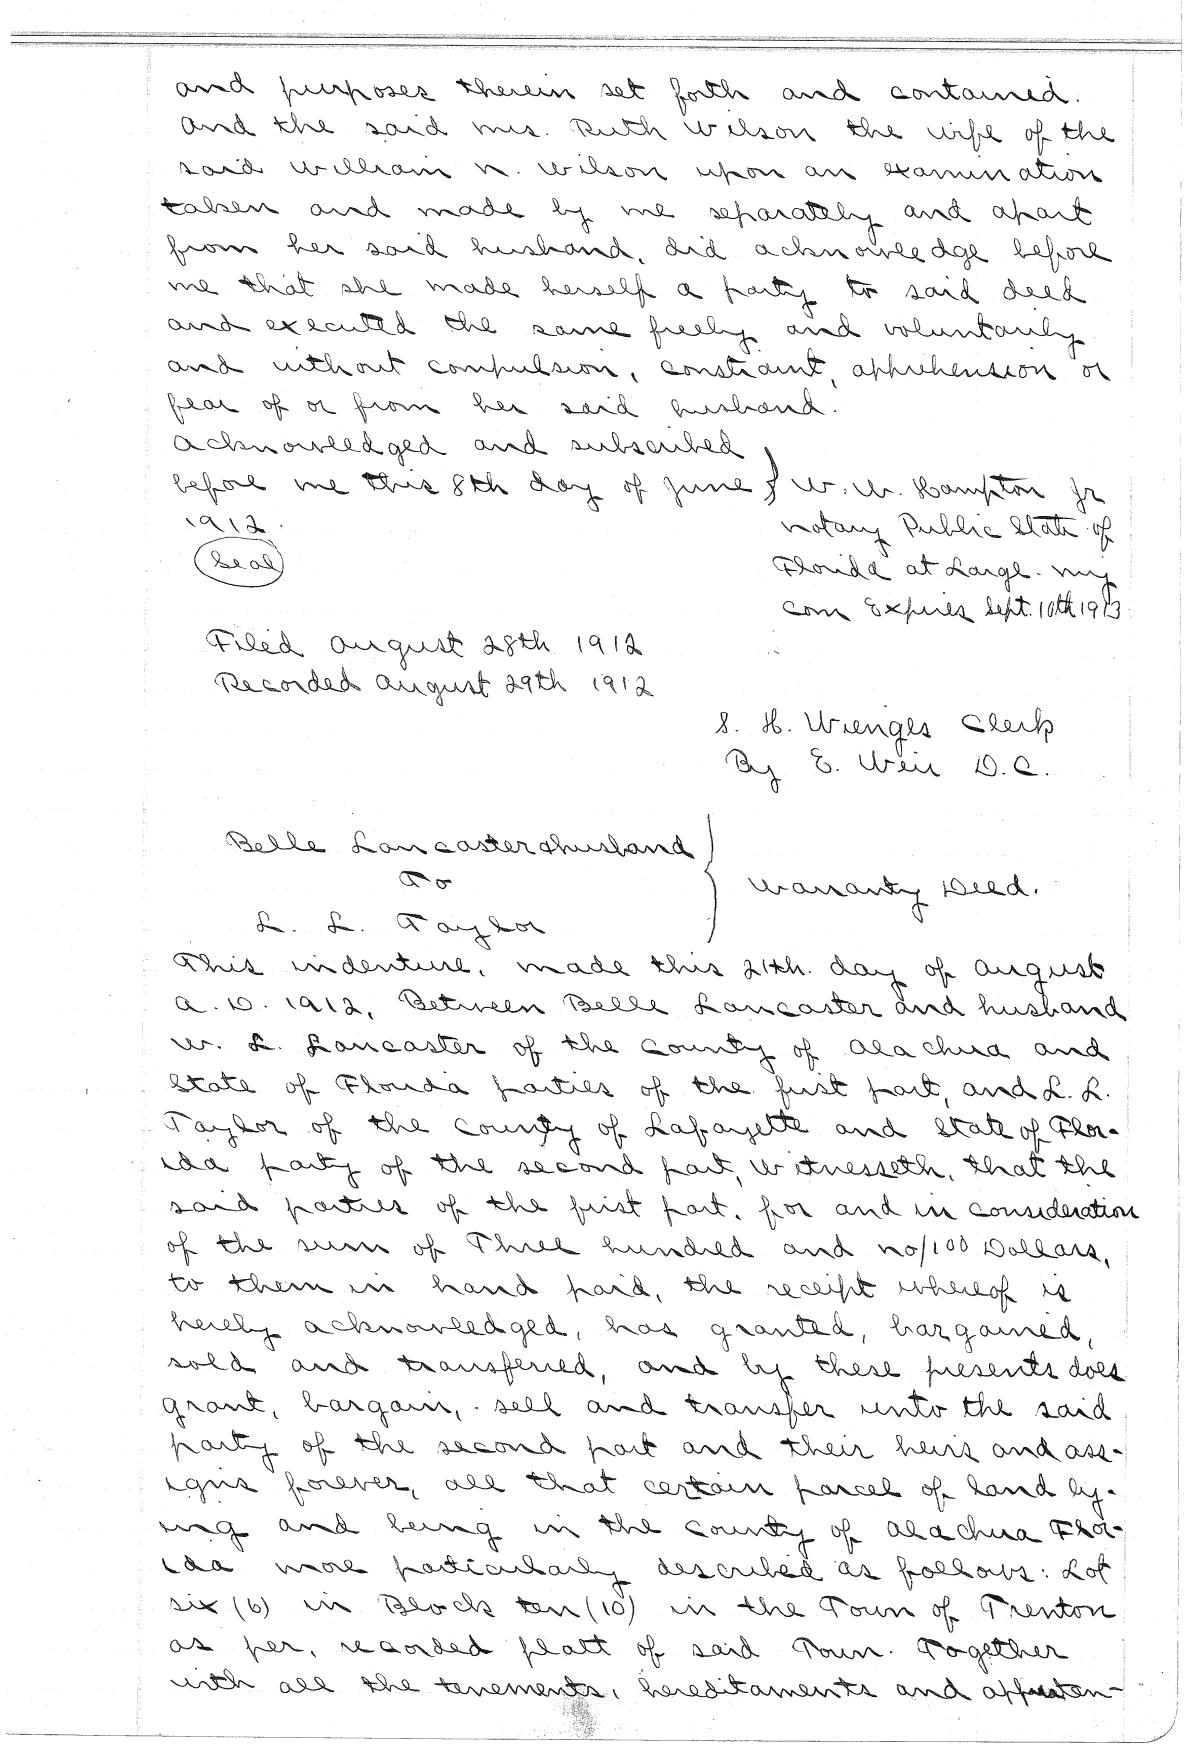 and purposes therein set forth and contained.
And the said Mrs. Ruth Wilson the wife of the
said William N. Wilson upon an examination
taken and made by me separately and apart
from her said husband, did acknowledge before
me that she made herself a party to said deed
and executed the same freely and voluntarily
and without compulsion, constraint, apprehension or
fear of or from her said husband.
Acknowledged and subscribed
before me this 8th day of June } W. W. Hampton Jr
1912.
Notary Public State of
(Seal)
Florida at Large. My
Com Expires Sept. 10th 1913
Filed August 28th 1912
Recorded August 29th 1912
S. H. Wienges Clerk
By E. Weir D.C.
Belle Lancaster & husband
To
Warranty Deed.
L. L. Taylor
This indenture, made this 21th. day of August
A. D. 1912, Between Belle Lancaster and husband
W. L. Lancaster of the County of Alachua and
State of Florida parties of the first part, and L. L.
Taylor of the County of Lafayette and State of Flor-
ida party of the second part, Witnesseth, that the
said parties of the first part, for and in consideration
of the sum of Three hundred and no/100 Dollars,
to them in hand paid, the receipt whereof is
hereby acknowledged, has granted, bargained,
sold and transferred, and by these presents does
grant, bargain, sell and transfer unto the said
party of the second part and their heirs and ass-
igns forever, all that certain parcel of land ly-
ing and being in the County of Alachua Flor-
ida more particularly described as follows: Lot
six (6) in Block ten (10) in the Town of Trenton
as per, recorded platt of said Town. Together
with all the tenements, hereditaments and appurten-